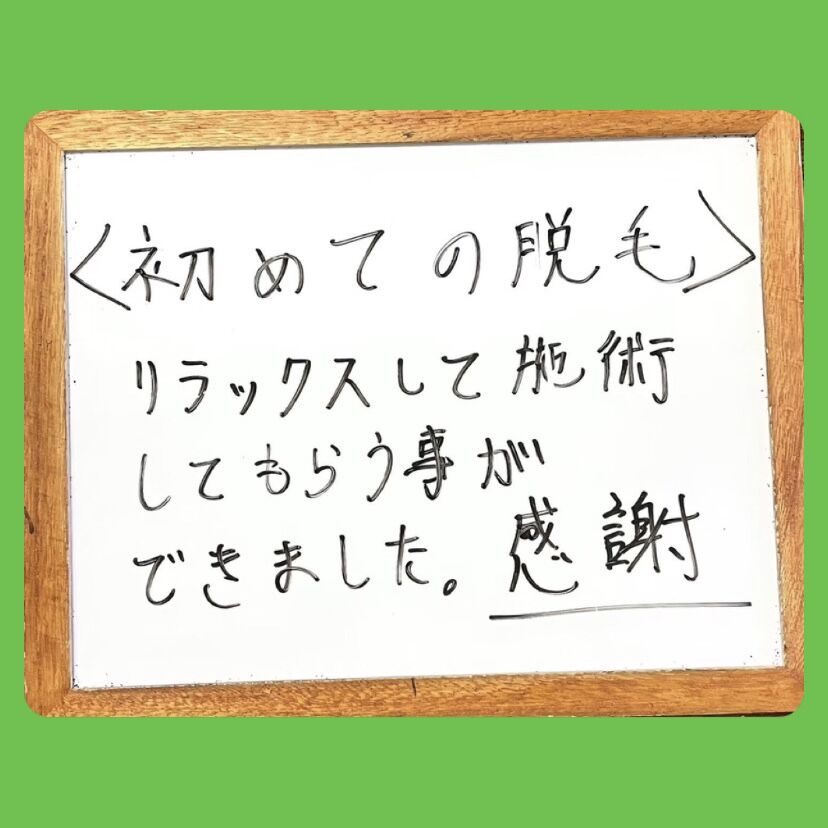 〈初めての脱毛〉
リラックスして施術
してもらう事が
できました。感謝